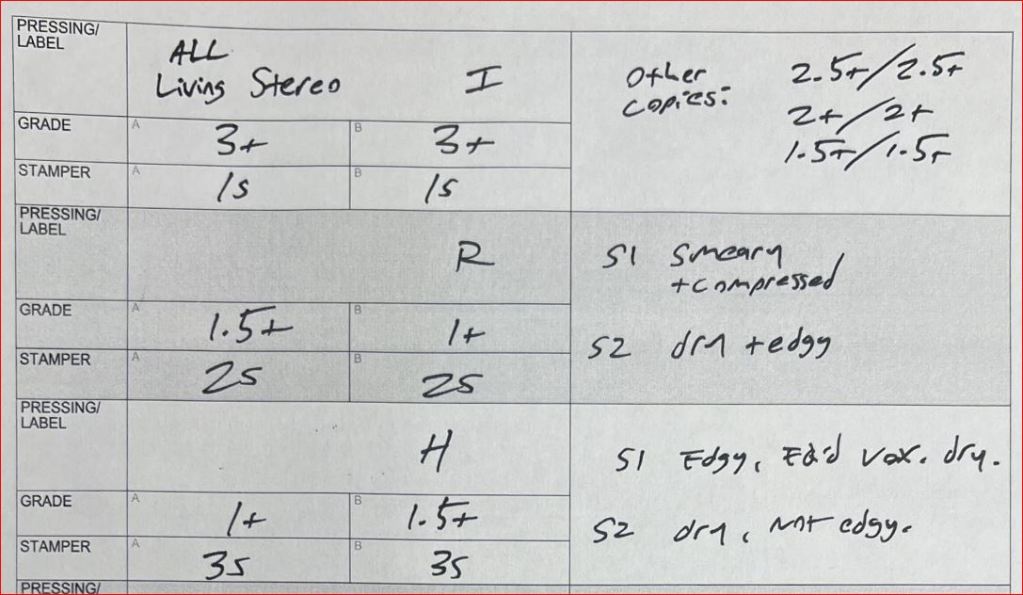 PRESSING/
LABEL
ALL
Living Stereo I
Other
copies:
2.5+/2.5+
2+/2+
1.5+/1.5+
GRADE A 3+ B 3+
STAMPER A 1s B 1s
PRESSING/
LABEL
R
S1 Smeary
+compressed
GRADE A 1.5+ B 1+
S2 dry +edgy
STAMPER A 2s B 2s
PRESSING/
LABEL
H
S1 Edgy, EQ'd Vox. dry.
GRADE A 1+ B 1.5+
S2 dry, not edgy.
STAMPER A 3s B 3s
PRESSING/